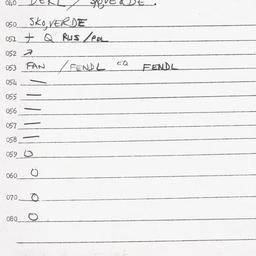 040 DERL / SKØVERDE.
050 SKO,VERDE
051 + Q RUS/POL
052 ↗
053 FAN /FENDL CQ FENDL
054 —
055 —
056 —
057 —
058 —
059 O
060 O
070 O
080 O